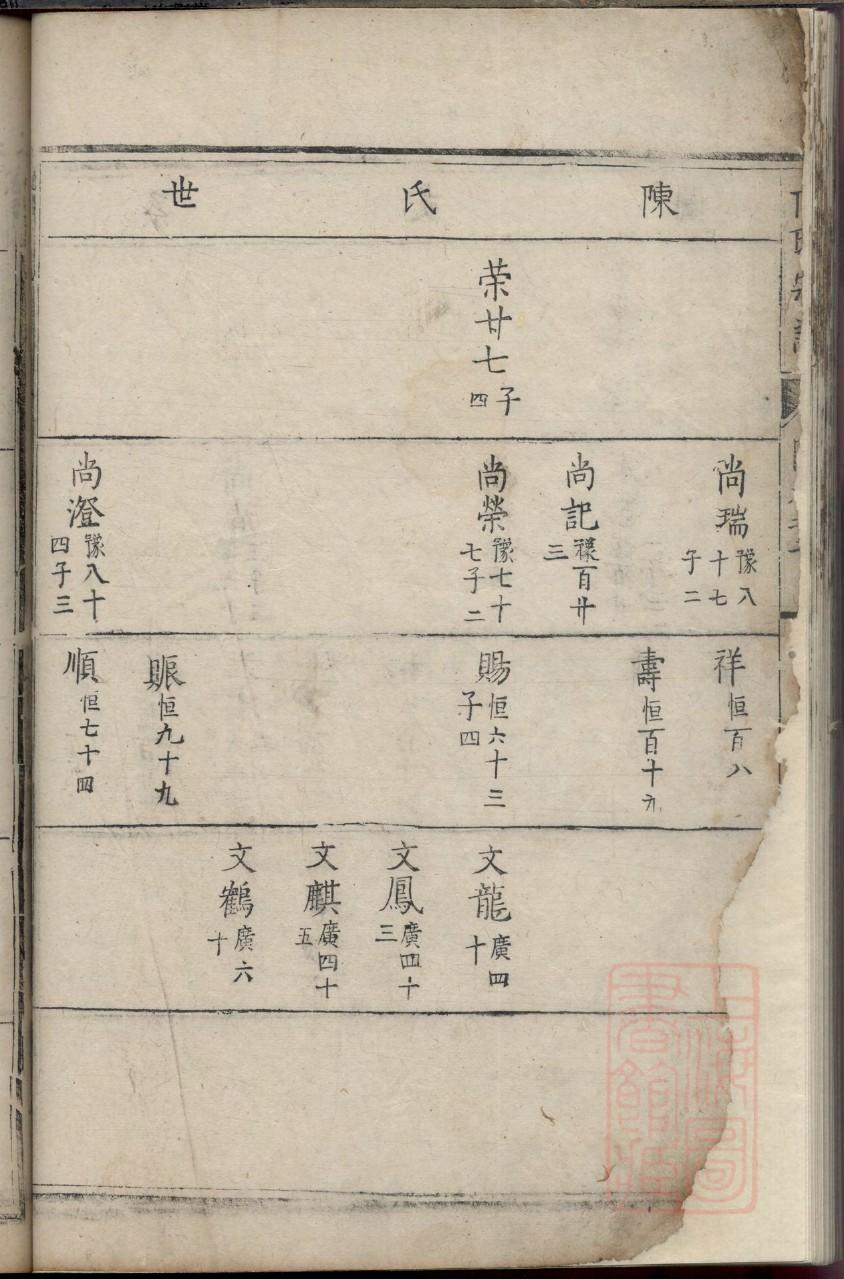 陳氏世
荣廿七子四
尚瑞豫八十七子二
尚記豫百廿三
尚榮豫七十七子二
尚澄豫八十四子三
祥恒百八
壽恒百十九
賜恒六十三子四
賑恒九十九
順恒七十四
文龍廣四十
文鳳廣四十三
文麒廣四十五
文鶴廣六十
上海圖書館藏